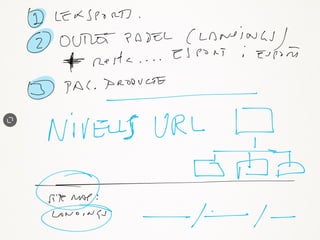 1 LEKSPORTS.
2 OUTLET PADEL (LANDINGS)
+ resta.... ESPORT i ESPORT
3 PAG. PRODUCTE
NIVELLS URL
SITE MAP:
LANDINGS